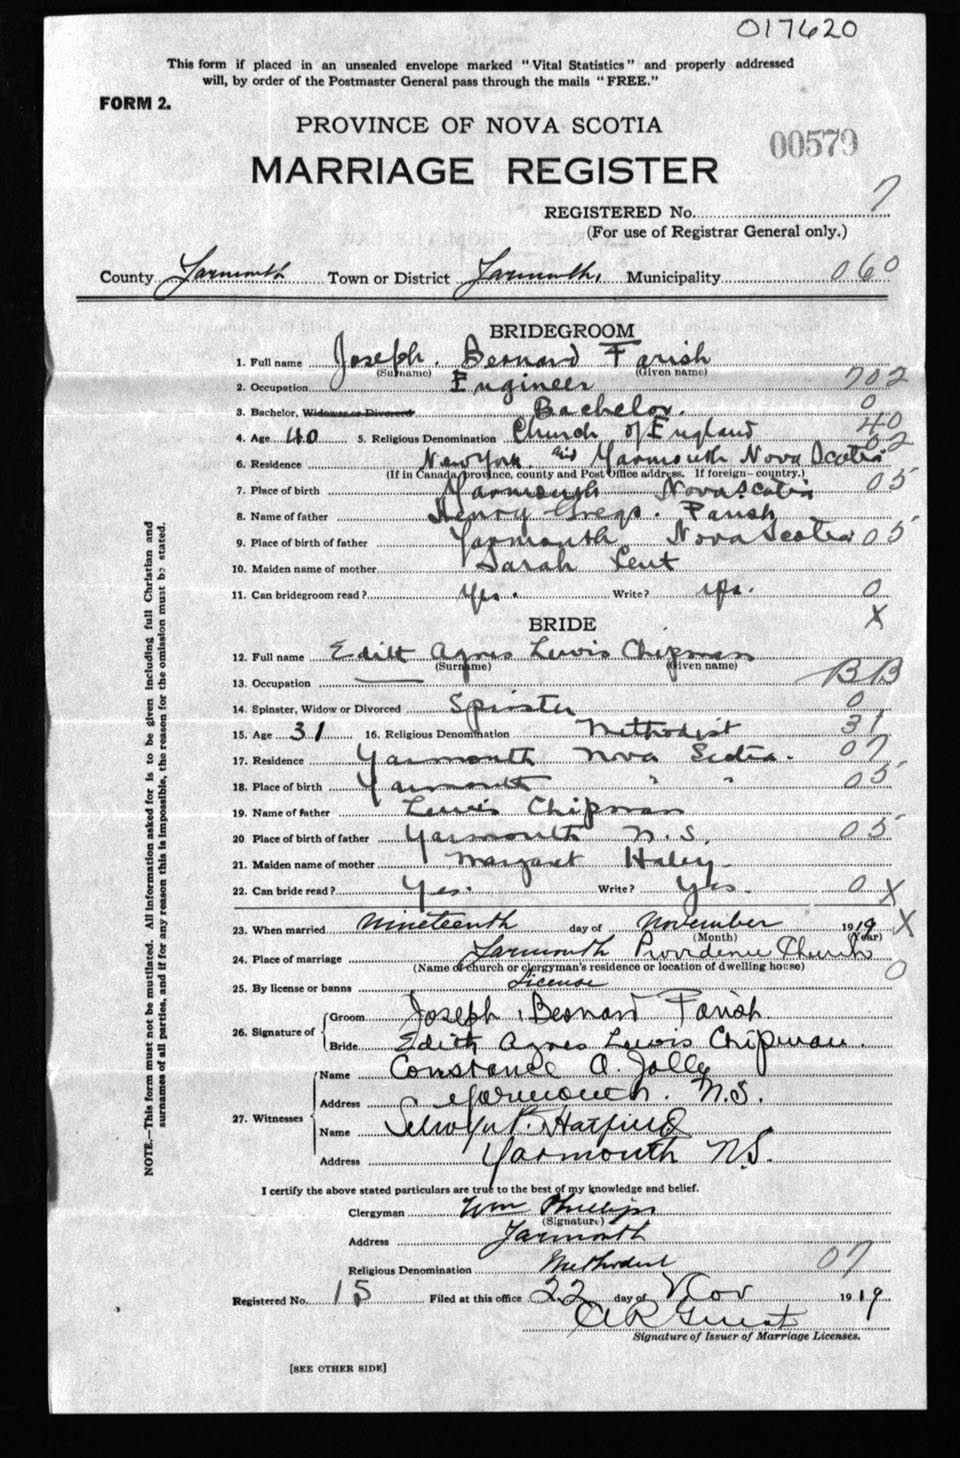 017620
This form if placed in an unsealed envelope marked "Vital Statistics" and properly addressed
will, by order of the Postmaster General pass through the mails "FREE."
FORM 2.
PROVINCE OF NOVA SCOTIA
00579
MARRIAGE REGISTER
REGISTERED No. 7
(For use of Registrar General only.)
County Yarmouth Town or District Yarmouth, Municipality 060
BRIDEGROOM
1. Full name Joseph Bernard Farish
(Surname) (Given name)
2. Occupation Engineer 702
3. Bachelor, Widower or Divorced Bachelor. 0
4. Age 40 5. Religious Denomination Church of England 40
6. Residence New York and Yarmouth Nova Scotia 02
(If in Canada province, county and Post Office address. If foreign—country.)
7. Place of birth Yarmouth Nova Scotia 05
8. Name of father Henry Greggs Farish
9. Place of birth of father Yarmouth Nova Scotia 05
10. Maiden name of mother Sarah Lent
11. Can bridegroom read? Yes. Write? Yes. 0
X
BRIDE
12. Full name Edith Agnes Lewis Chipman
(Surname) (Given name)
13. Occupation BB
14. Spinster, Widow or Divorced Spinster 0
15. Age 31 16. Religious Denomination Methodist 31
17. Residence Yarmouth Nova Scotia. 07
18. Place of birth Yarmouth " " 05
19. Name of father Lewis Chipman
20 Place of birth of father Yarmouth N.S. 05
21. Maiden name of mother Margaret Haley
22. Can bride read? Yes. Write? Yes. 0 X
23. When married nineteenth day of November 1919 X
(Month) (Year)
24. Place of marriage Yarmouth Providence Church
(Name of church or clergyman's residence or location of dwelling house) 0
25. By license or banns License
26. Signature of Groom Joseph Bernard Farish
Bride Edith Agnes Lewis Chipman.
27. Witnesses Name Constance A. Jolly
Address Yarmouth. N.S.
Name Selwyn P. Hatfield
Address Yarmouth N.S.
I certify the above stated particulars are true to the best of my knowledge and belief.
Clergyman Wm Phillips
(Signature)
Address Yarmouth
Religious Denomination Methodist 07
Registered No. 15 Filed at this office 22 day of Nov 1919
Guest
Signature of Issuer of Marriage Licenses.
[SEE OTHER SIDE]
NOTE.—This form must not be mutilated. All information asked for is to be given including full Christian and
surnames of all parties, and if for any reason this is impossible, the reason for the omission must be stated.